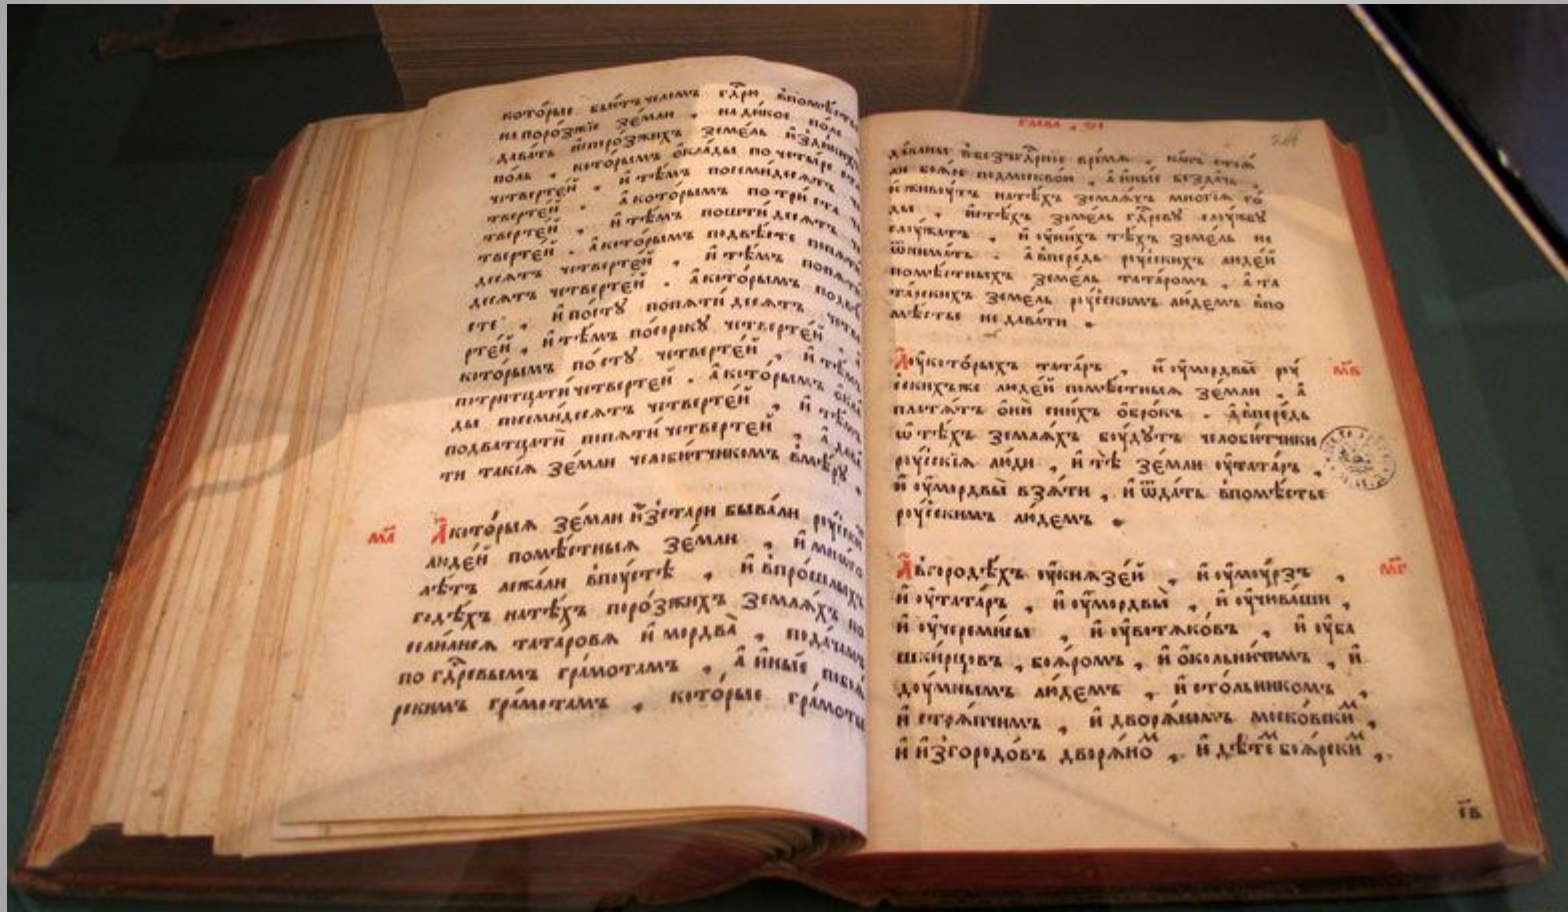 которые бью́тъ челомъ гдⷭ҇рю впомѣстье
на поро́зжїе зе́мли , на ди́кое по́ле
дава́ть ѿпоро́зжихъ земе́ль и҆зди́кихъ
по́ль , кото́рымъ о҆кла́ды по четы́ре ста
четверте́й , и҆ тѣ́мъ посемидеся́тъ че
тверте́й . а҆ кото́рымъ по три́ ста че
тверте́й , и҆ тѣ́мъ пошти́деся́тъ че
тверте́й . а҆ кото́рымъ подвѣ́сте попяти
деся́тъ четверте́й , и҆ тѣ́мъ попяти
деся́тъ четверте́й . а҆ кото́рымъ подву
сте , и҆ по́стꙋ попяти́ деся́тъ четве
рте́й , и҆ тѣ́мъ посо́рокꙋ четверте́й , а҆
кото́рымъ по́стꙋ четверте́й , и҆ тѣ́мъ
потритцати́ четверте́й . а҆ кото́рымъ о҆кла
ды посемидеся́тъ четверте́й , и҆ тѣ́мъ
подватцати́ попяти́ четверте́й , а҆ дава
ти такі́ѧ зе́мли челоби́тчикомъ вмѣ́рꙋ ,
м҃а А҆ кото́рыѧ зе́мли и҆зстари быва́ли рꙋ́сскихъ
люде́й помѣ́стныѧ зе́мли , и҆ мно́го
лѣ́тъ лежа́ли впꙋ́стѣ , и҆ впро́шлыхъ
годѣ́хъ на тѣ́хъ поро́зжихъ земля́хъ по
сели́лисѧ татаровѧ и҆ мордва̀ , пода́чамъ
по гдⷭ҇ревымъ гра́мотамъ , а҆ и҆ны́е побоѧ
рскимъ гра́мотамъ , кото́рые гра́моты
глава , ѕ҃і
да́ваны вбезъгдⷭ҇рное вре́мѧ , ка́къ стоя
ли боѧ́ре подмоскво́ю , а҆ и҆ны́е бездачь ,
и҆ живꙋ́тъ натѣ́хъ земля́хъ мно́гїѧ го́
ды , и҆стѣ́хъ земе́ль гдⷭ҇ревꙋ слꙋ́жбꙋ
слꙋ́жатъ , и҆ ꙋ҆ни́хъ тѣ́хъ земе́ль не
ѿнима́ть . а҆ впере́дь рꙋ́сскихъ люде́й
помѣ́стныхъ земе́ль татаромъ , а҆ та
та́рскихъ земе́ль рꙋ́сскимъ лю́демъ впо
мѣ́стье не дава́ти .
А҆ ꙋ҆кото́рыхъ тата́ръ , и҆ ꙋ҆мордвы̀ рꙋ́ м҃в
сскихъже люде́й помѣ́стныѧ зе́мли , а҆
платѧ́тъ о҆нѝ сни́хъ о҆бро́къ . а҆ впере́дь
ѡ҆ тѣ́хъ земля́хъ бꙋ́дꙋтъ челоби́тчики
рꙋ́сскїѧ лю́ди , и҆ тѣ̀ зе́мли ꙋ҆тата́ръ ,
и҆ ꙋ҆мордвы̀ взя́ти , и҆ ѿда́ть впомѣ́стье
рꙋ́сскимъ лю́демъ .
А҆ вгородѣ́хъ ꙋ҆князе́й , и҆ ꙋ҆мꙋ́рзъ , м҃г
и҆ ꙋ҆тата́ръ , и҆ ꙋ҆мордвы̀ , и҆ ꙋ҆чюва́ши ,
и҆ ꙋ҆черемисы , и҆ ꙋ҆вотяко́въ , и҆ ꙋ҆ба
шки́рцовъ , боѧ́ромъ , и҆ о҆кольни́чимъ , и҆
дꙋ́мнымъ лю́демъ , и҆ сто́льникомъ ,
и҆ стрѧ́пчимъ , и҆ дворѧ́номъ моско́вскимⷨ ,
и҆ и҆згородо́въ дворѧ́ноⷨ , и҆ дѣ́теⷨ боѧ́рскиⷨ ,